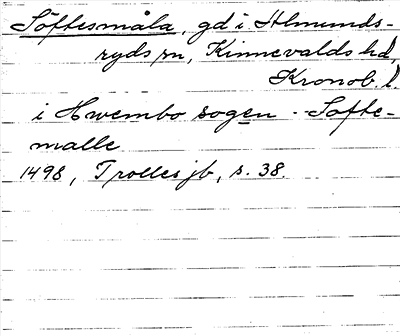 Söftesmåla, gd i Almunds-
ryds sn, Kinnevalds hd,
Kronob. l.
i Hwembo sogen - Softe-
malle
1498, Trolles jb, s. 38.